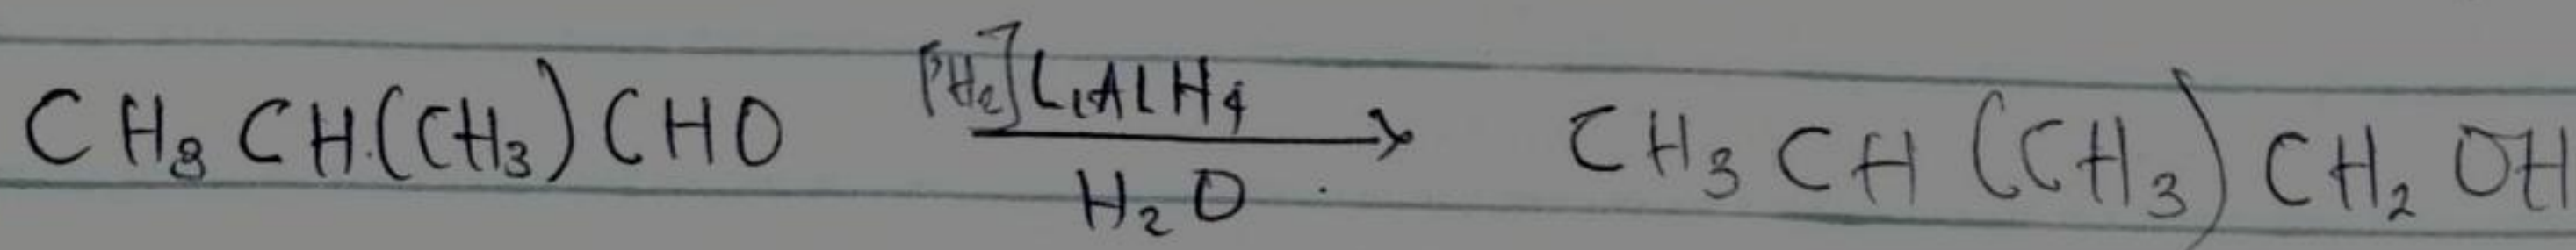 CH₃CH(CH₃)CHO [H₂]LiAlH₄ → CH₃CH(CH₃)CH₂OH
H₂O